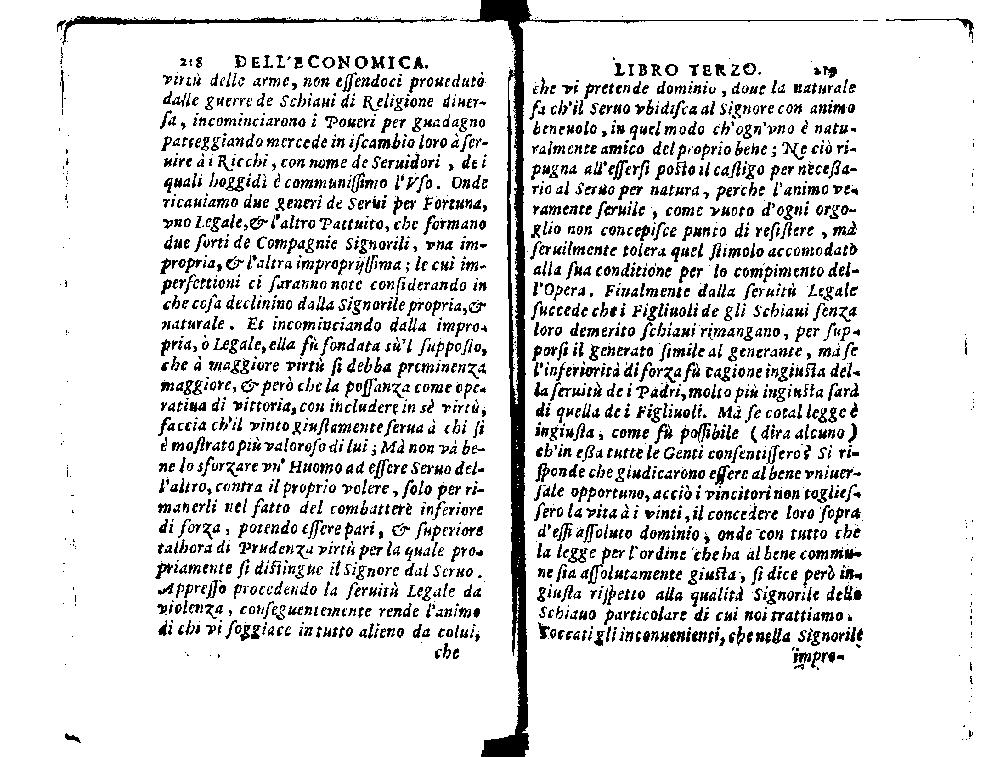 218 DELL'ECONOMICA.
virtù delle arme, non eſſendoci proueduto
dalle guerre de Schiaui di Religione diuer-
ſa, incominciarono i Poueri per guadagno
patteggiando mercede in iſcambio loro à ſer-
uire à i Ricchi, con nome de Seruidori, de i
quali hoggidì è communiſſimo l'Vſo. Onde
ricauiamo due generi de Serui per Fortuna,
vno Legale, & l'altro Pattuito, che formano
due ſorti de Compagnie Signorili, vna im-
propria, & l'altra improprijſſima; le cui im-
perfettioni ci ſaranno note conſiderando in
che coſa declinino dalla Signorile propria, &
naturale. Et incominciando dalla impro-
pria, ò Legale, ella fù fondata sù'l ſuppoſto,
che à maggiore virtù ſi debba preminenza
maggiore, & però che la poſſanza come ope-
ratiua di vittoria, con includere in sè virtù,
faccia ch'il vinto giuſtamente ſerua à chi ſi
è moſtrato più valoroſo di lui; Mà non và be-
ne lo sforzare vn' Huomo ad eſſere Seruo del-
l'altro, contra il proprio volere, ſolo per ri-
manerli nel fatto del combattere inferiore
di forza, potendo eſſere pari, & ſuperiore
talhora di Prudenza virtù per la quale pro-
priamente ſi diſtingue il Signore dal Seruo.
Appreſſo procedendo la ſeruitù Legale da
violenza, conſeguentemente rende l'animo
di chi vi ſoggiace in tutto alieno da colui,
che
LIBRO TERZO. 219
che vi pretende dominio, doue la naturale
fa ch'il Seruo vbidiſca al Signore con animo
beneuolo, in quel modo ch'ogn'vno è natu-
ralmente amico del proprio bene; Ne ciò ri-
pugna all'eſſerſi poſto il caſtigo per neceſſa-
rio al Seruo per natura, perche l'animo ve-
ramente ſeruile, come vuoto d'ogni orgo-
glio non concepiſce punto di reſiſtere, mà
ſeruilmente tolera quel ſtimolo accomodato
alla ſua conditione per lo compimento del-
l'Opera. Finalmente dalla ſeruitù Legale
ſuccede che i Figliuoli de gli Schiaui ſenza
loro demerito ſchiaui rimangano, per ſup-
porſi il generato ſimile al generante, mà ſe
l'inferiorità di forza fù cagione ingiuſta del-
la ſeruitù de i Padri, molto più ingiuſta ſarà
di quella de i Figliuoli. Mà ſe cotal legge è
ingiuſta, come fù poſſibile (dira alcuno)
ch'in eßa tutte le Genti conſentiſſero? Si ri-
ſponde che giudicarono eſſere al bene vniuer-
ſale opportuno, acciò i vincitori non toglieſ-
ſero la vita à i vinti, il concedere loro ſopra
d'eſſi aſſoluto dominio, onde con tutto che
la legge per l'ordine che ha al bene commu-
ne ſia aſſolutamente giuſta, ſi dice però in-
giuſta riſpetto alla qualità Signorile dello
Schiauo particolare di cui noi trattiamo.
Toccati gli inconuenienti, che nella Signorile
impro-